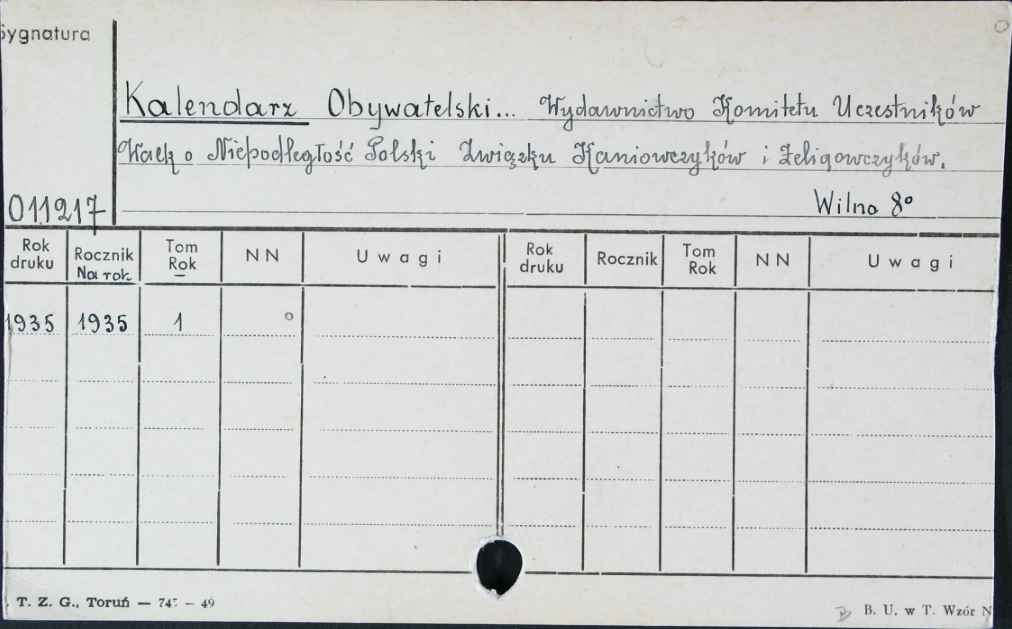 Sygnatura
Kalendarz Obywatelski... Wydawnictwo Komitetu Uczestników
Walk o Niepodległość Polski Związku Kaniowczyków i Żeligowczyków.
011217 Wilno 8°
Rok druku Rocznik Na rok Tom Rok NN Uwagi Rok druku Rocznik Tom Rok NN Uwagi
1935 1935 1
T. Z. G., Toruń — 49
B. U. w T. Wzór N